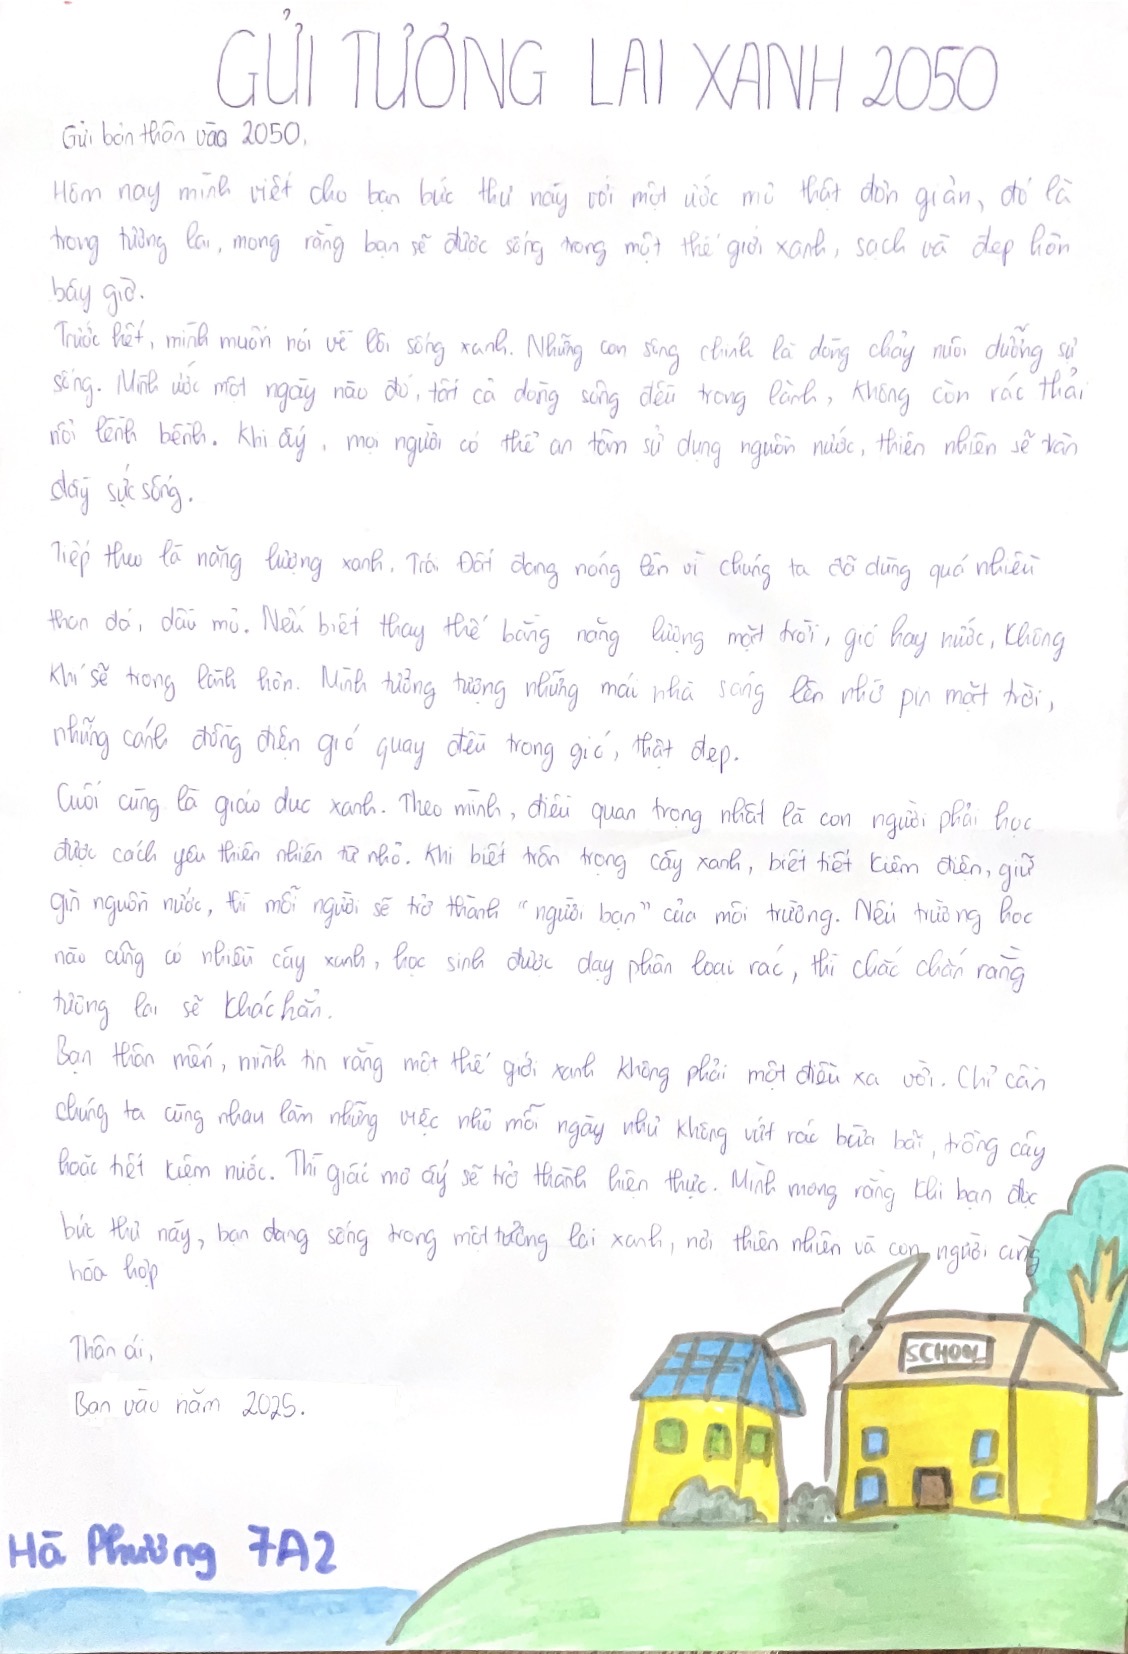 GỬI TƯƠNG LAI XANH 2050
Gửi bản thân vào 2050,
Hôm nay mình viết cho bạn bức thư này với một ước mơ thật đơn giản, đó là
trong tương lai, mong rằng bạn sẽ được sống trong một thế giới xanh, sạch và đẹp hơn
bây giờ.
Trước hết, mình muốn nói về lối sống xanh. Những con sông chính là dòng chảy nuôi dưỡng sự
sống. Mình ước một ngày nào đó, tất cả dòng sông đều trong lành, không còn rác thải
nổi lềnh bềnh. Khi ấy, mọi người có thể an tâm sử dụng nguồn nước, thiên nhiên sẽ tràn
đầy sức sống.
Tiếp theo là năng lượng xanh. Trái Đất đang nóng lên vì chúng ta đã dùng quá nhiều
than đá, dầu mỏ. Nếu biết thay thế bằng năng lượng mặt trời, gió hay nước, không
khí sẽ trong lành hơn. Mình tưởng tượng những mái nhà sáng lên nhờ pin mặt trời,
những cánh đồng điện gió quay đều trong gió, thật đẹp.
Cuối cùng là giáo dục xanh. Theo mình, điều quan trọng nhất là con người phải học
được cách yêu thiên nhiên từ nhỏ. Khi biết trân trọng cây xanh, biết tiết kiệm điện, giữ
gìn nguồn nước, thì mỗi người sẽ trở thành "người bạn" của môi trường. Nếu trường học
nào cũng có nhiều cây xanh, học sinh được dạy phân loại rác, thì chắc chắn rằng
tương lai sẽ khác hẳn.
Bạn thân mến, mình tin rằng một thế giới xanh không phải một điều xa vời. Chỉ cần
chúng ta cùng nhau làm những việc nhỏ mỗi ngày như không vứt rác bừa bãi, trồng cây
hoặc tiết kiệm nước. Thì giấc mơ ấy sẽ trở thành hiện thực. Mình mong rằng khi bạn đọc
bức thư này, bạn đang sống trong một tương lai xanh, nơi thiên nhiên và con người cùng
hòa hợp
Thân ái,
Bạn vào năm 2025.
SCHOOL
Hà Phương 7A2